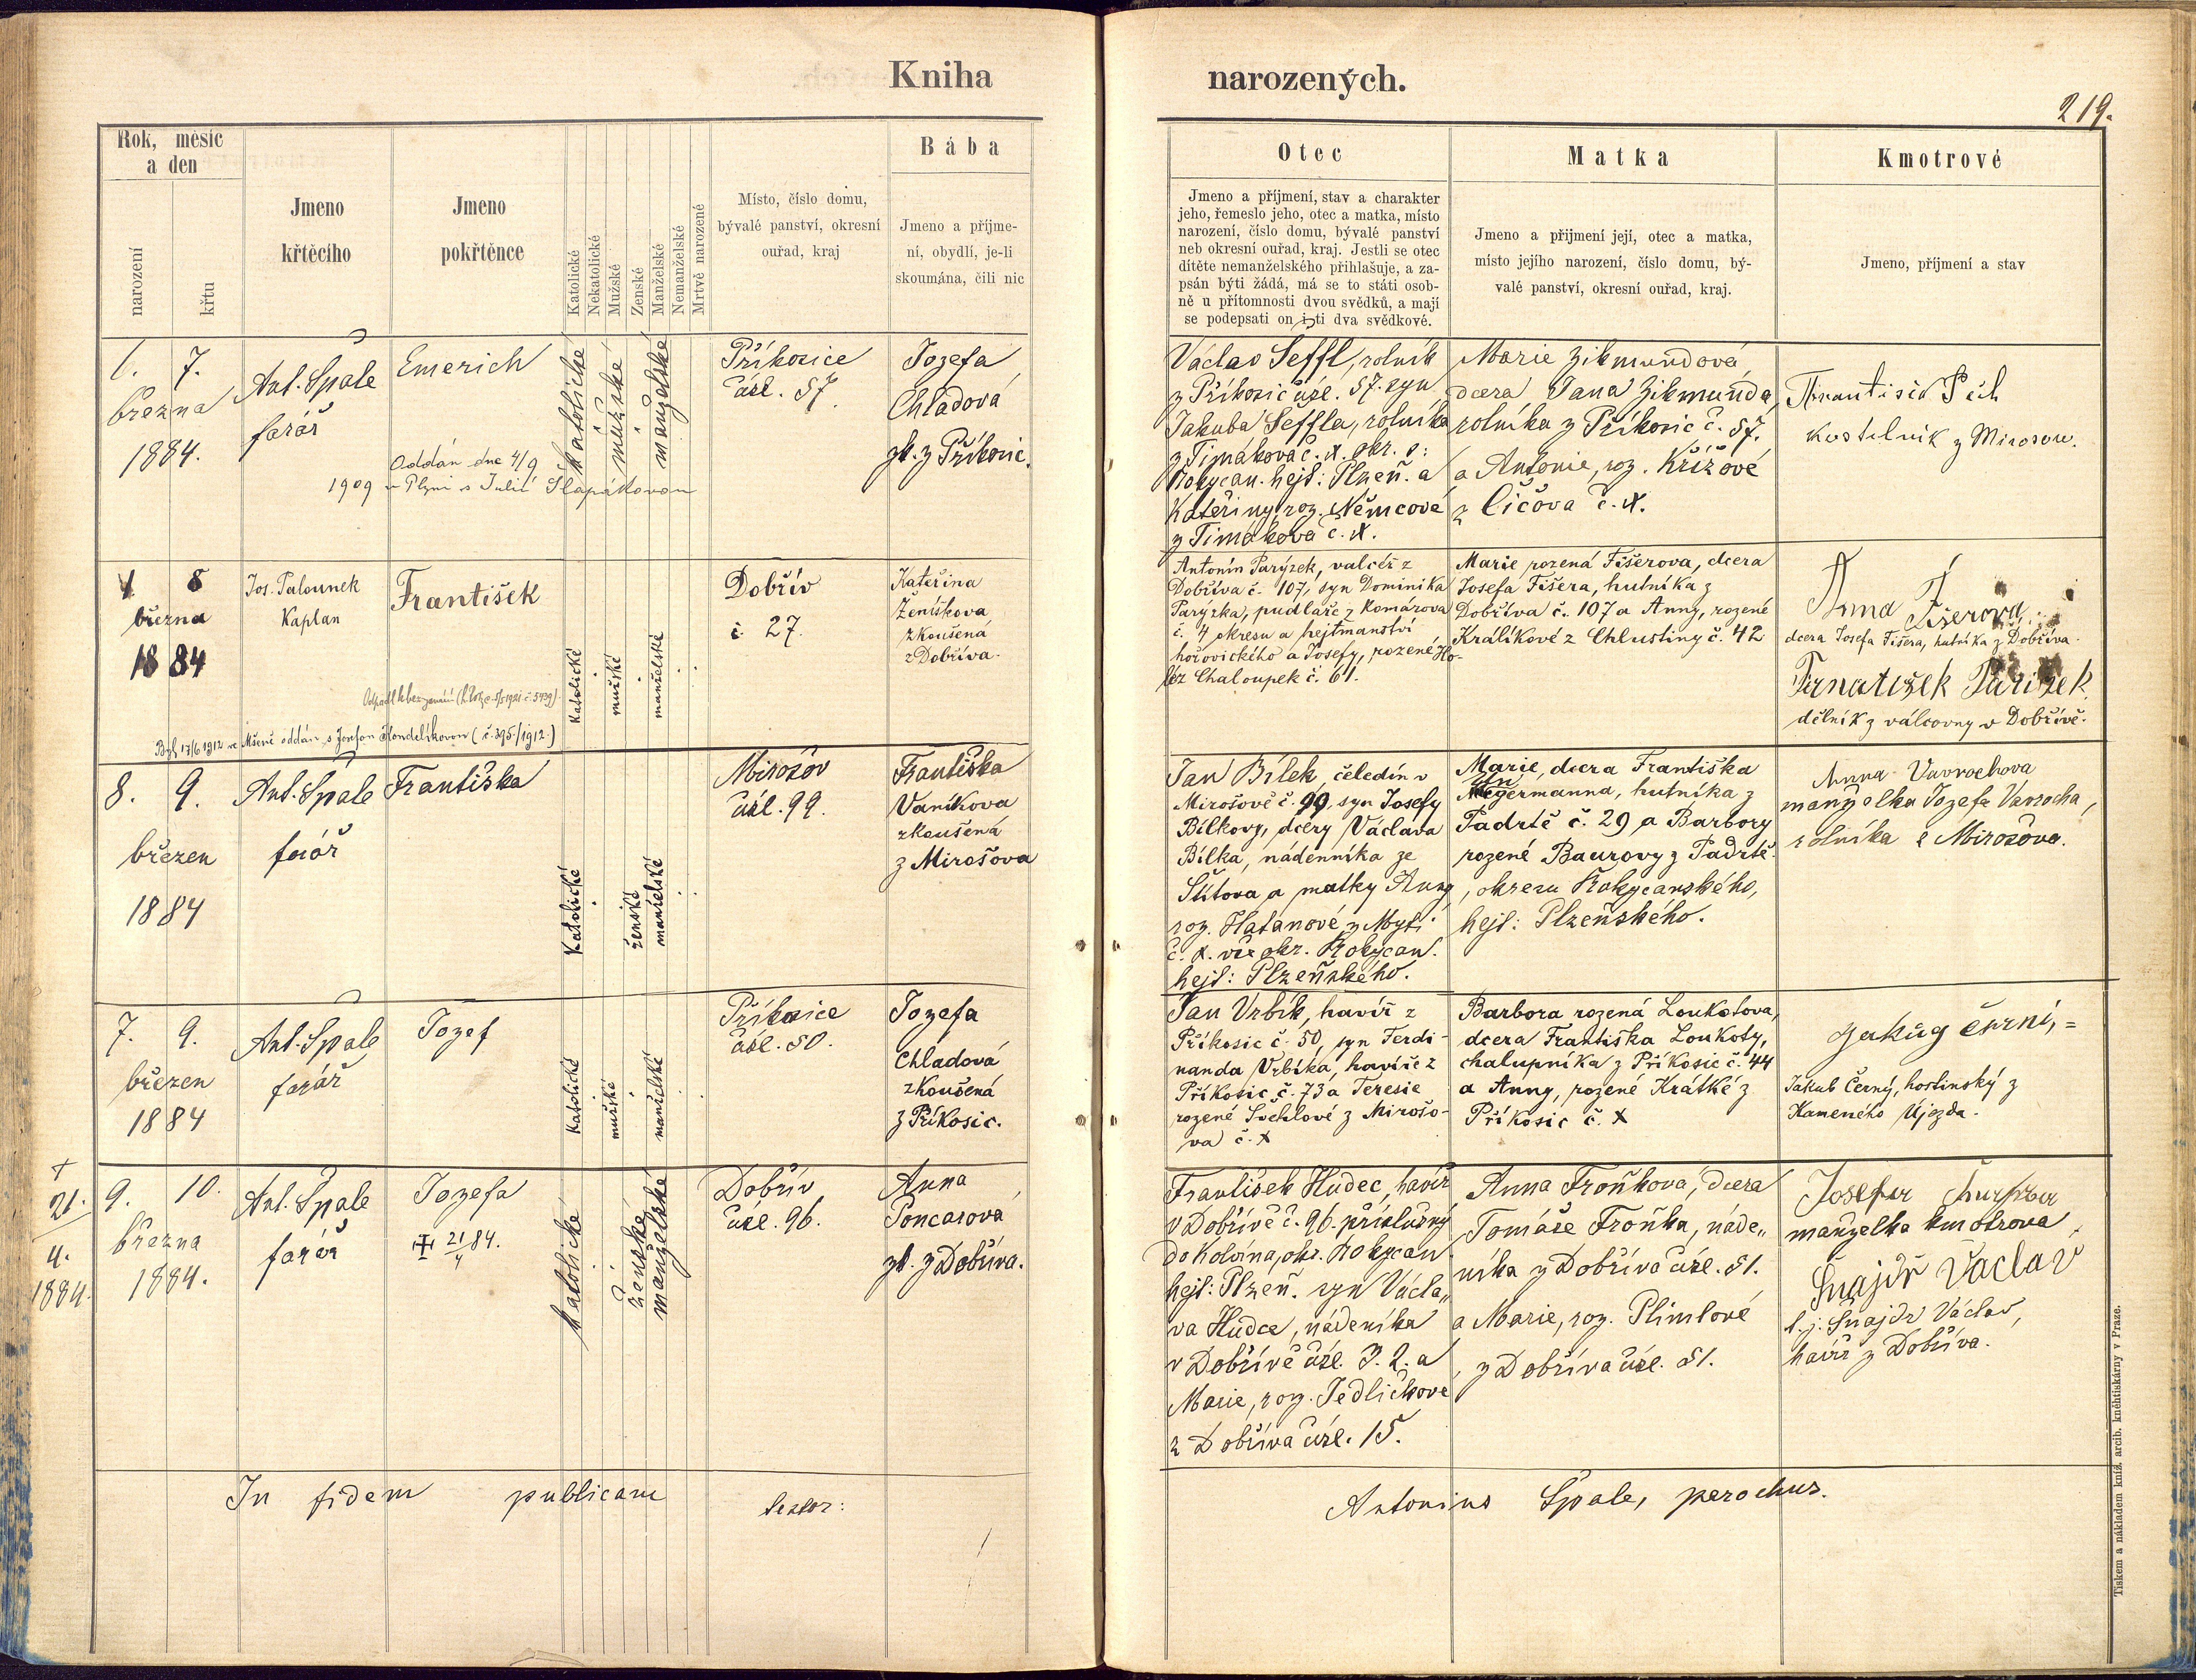 Kniha
narozených.
219.
Rok, měsíc
a den
narození
křtu
Jmeno
křtěcího
Jmeno
pokřtěnce
Katolické
Nekatolické
Mužské
Ženské
Manželské
Nemanželské
Mrtvě narozené
Místo, číslo domu,
bývalé panství, okresní
ouřad, kraj
Bába
Jmeno a příjme-
ní, obydlí, je-li
skoumána, čili nic
Otec
Jmeno a příjmení, stav a charakter
jeho, řemeslo jeho, otec a matka, místo
narození, číslo domu, bývalé panství
neb okresní ouřad, kraj. Jestli se otec
dítěte nemanželského přihlašuje, a za-
psán býti žádá, má se to státi osob-
ně u přítomnosti dvou svědků, a mají
se podepsati on i ti dva svědkové.
Matka
Jmeno a přijmení její, otec a matka,
místo jejího narození, číslo domu, bý-
valé panství, okresní ouřad, kraj.
Kmotrové
Jmeno, příjmení a stav
1. 7.
března
1884.
Ant. Špale
farář
Emerich
Oddán dne 4/9
1909 v Plzni s Julií Šlapákovou
katolické
mužské
manželské
Příkosice
čísl. 57.
Jozefa
Chladová
zk. z Příkosic.
Václav Šeffl, rolník
z Příkosic čísl. 57. syn
Jakuba Šeffla, rolníka
z Timákova č. x. okr. :
Rokycan. hejt: Plzeň. a
Kateřiny, roz. Němcové
z Timákova č. x.
Marie Zikmundová
dcera Jana Zikmunda,
rolníka z Příkosic č. 57.
a Antonie, roz. Křížové
z Číčova č. x.
František Pech
kostelník z Mirosova.
1 8
března
1884
Jos. Palounek
Kaplan
František
Byl 17/6 1912 ve Mšeně oddán s Josefou Hondelíkovou (č. 395/1912.)
Katolické
mužské
manželské
Dobřív
č. 27.
Kateřina
Ženíškova
zkoušená
z Dobříva.
Antonín Parýzek, valcíř z
Dobříva č. 107, syn Dominika
Paryzka, pudlaře z Komárova
č. 4 okresu a hejtmanství
hořovického a Josefy, rozené Ho-
léz Chaloupek č. 61.
Marie rozená Fišerova, dcera
Josefa Fišera, hutníka z
Dobříva č. 107 a Anny, rozené
Králíkové z Chlustiny č. 42
Anna Fišerova
dcera Josefa Fišera, hutníka z Dobříva.
Frnatišek Parizek
dělník z válcovny v Dobřívě.
8. 9.
březen
1884
Ant. Špale
farář
Františka
Katolické
ženské
manželské
Mirošov
čísl. 99.
Františka
Vaníkova
zkoušená
z Mirošova
Jan Bílek, čeledín v
Mirošově č. 99, syn Josefy
Bílkovy, dcery Václava
Bílka, nádenníka ze
Štítova a matky Anny
roz. Hatanové z Mýti
č. x. vše okr. Rokycan.
hejt: Plzeňského.
Marie, dcera Františka
germanna, hutníka z
Padrtě č. 29 a Barbory
rozené Baurovy z Padrtě
, okresu Rokycanského,
hejt: Plzeňského.
Anna Vavrochova
manželka Jozefa Vavrocha,
rolníka z Mirosova.
7. 9.
březen
1884
Ant. Špale
farář
Jozef
Katolické
mužské
manželské
Příkosice
čísl. 50.
Jozefa
Chladová
zkoušená
z Příkosic.
Jan Vrbík, havíř z
Příkosic č. 50, syn Ferdi-
nanda Vrbíka, havíře z
Příkosic č. 73 a Teresie
rozené Švehlové z Mirošo-
va č. x
Barbora rozená Loukotova,
dcera Františka Loukoty,
chalupníka z Příkosic č. 44
a Anny, rozené Krátké z
Příkosic č. x
Jakug černi,=
Jakub Černý, hostinský z
Kameného Újezda.
†
21.
4.
1884.
9. 10.
března
1884.
Ant. Špale
farář
Jozefa
✠ 21/4 84.
katolické
ženské
manželské
Dobřív
čísl. 96.
Anna
Poncarova
zk. z Dobříva.
František Hudec, havíř
v Dobřívě č. 96. příslušný
do Kolvína, okr. Rokycan
hejt: Plzeň. syn Václa„
va Hudce, nádeníka
v Dobřívě čísl. P. 2. a
Marie, roz. Jedličkové
z Dobříva čísl. 15.
Anna Froňková, dcera
Tomáše Froňka, náde„
níka z Dobříva čísl. 51.
a Marie, roz. Plimlové
z Dobříva čísl. 51.
manželka kmotrova
Šnajdr Vaclav
t. j. Šnajdr Václav,
havíř z Dobříva.
In fidem publicam testor:
Antonius Špale, parochus.
Tiskem a nákladem kníž. arcib. kněhtiskárny v Praze.